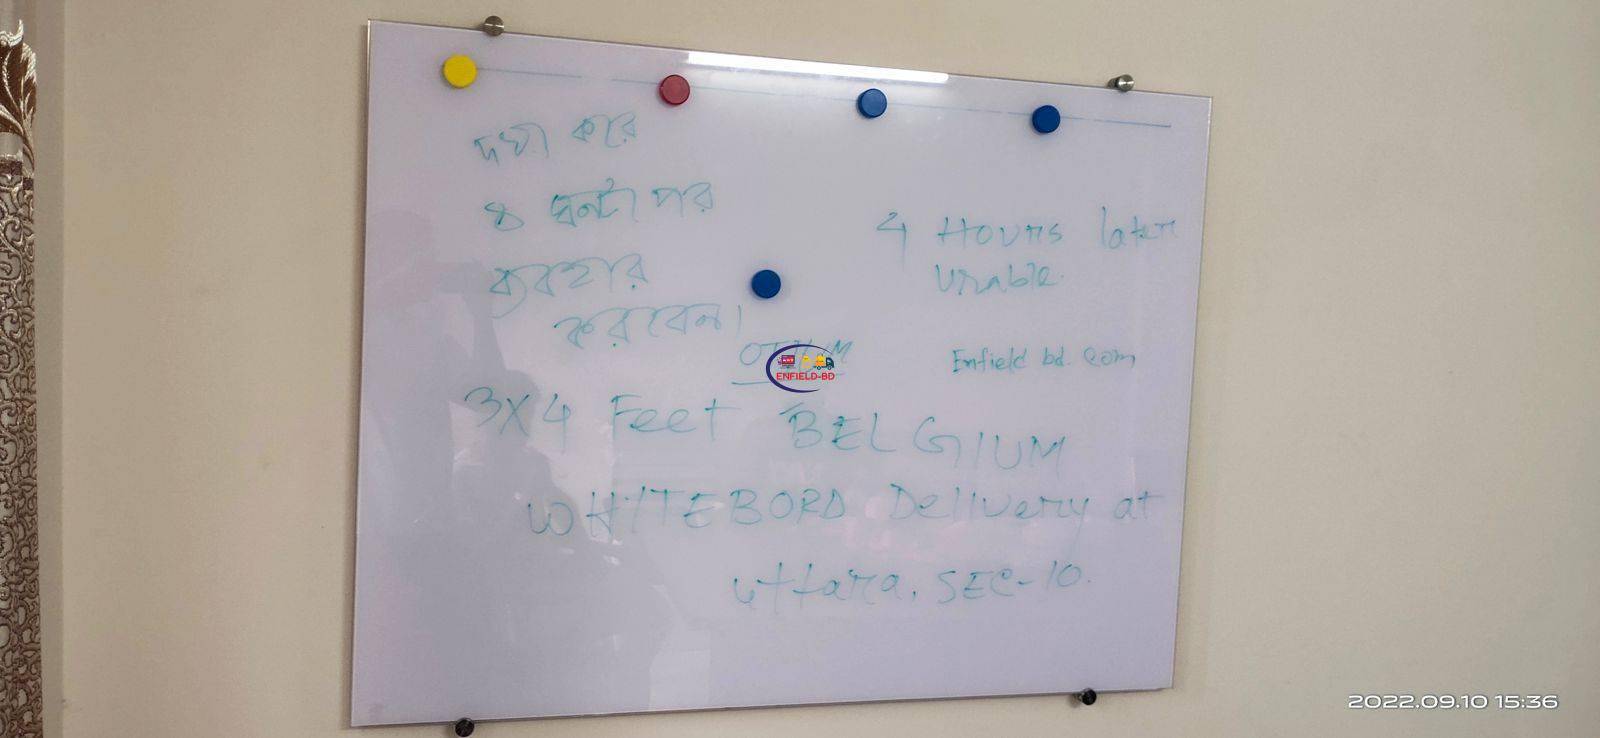 দয়া করে
৪ ঘন্টা পর
ব্যবহার
করবেন।
4 Hours later
Usable.
Enfield bd. Com
ENFIELD-BD
3X4 Feet BELGIUM
WHITEBORD Delivery at
uttara, SEC-10.
2022.09.10 15:36